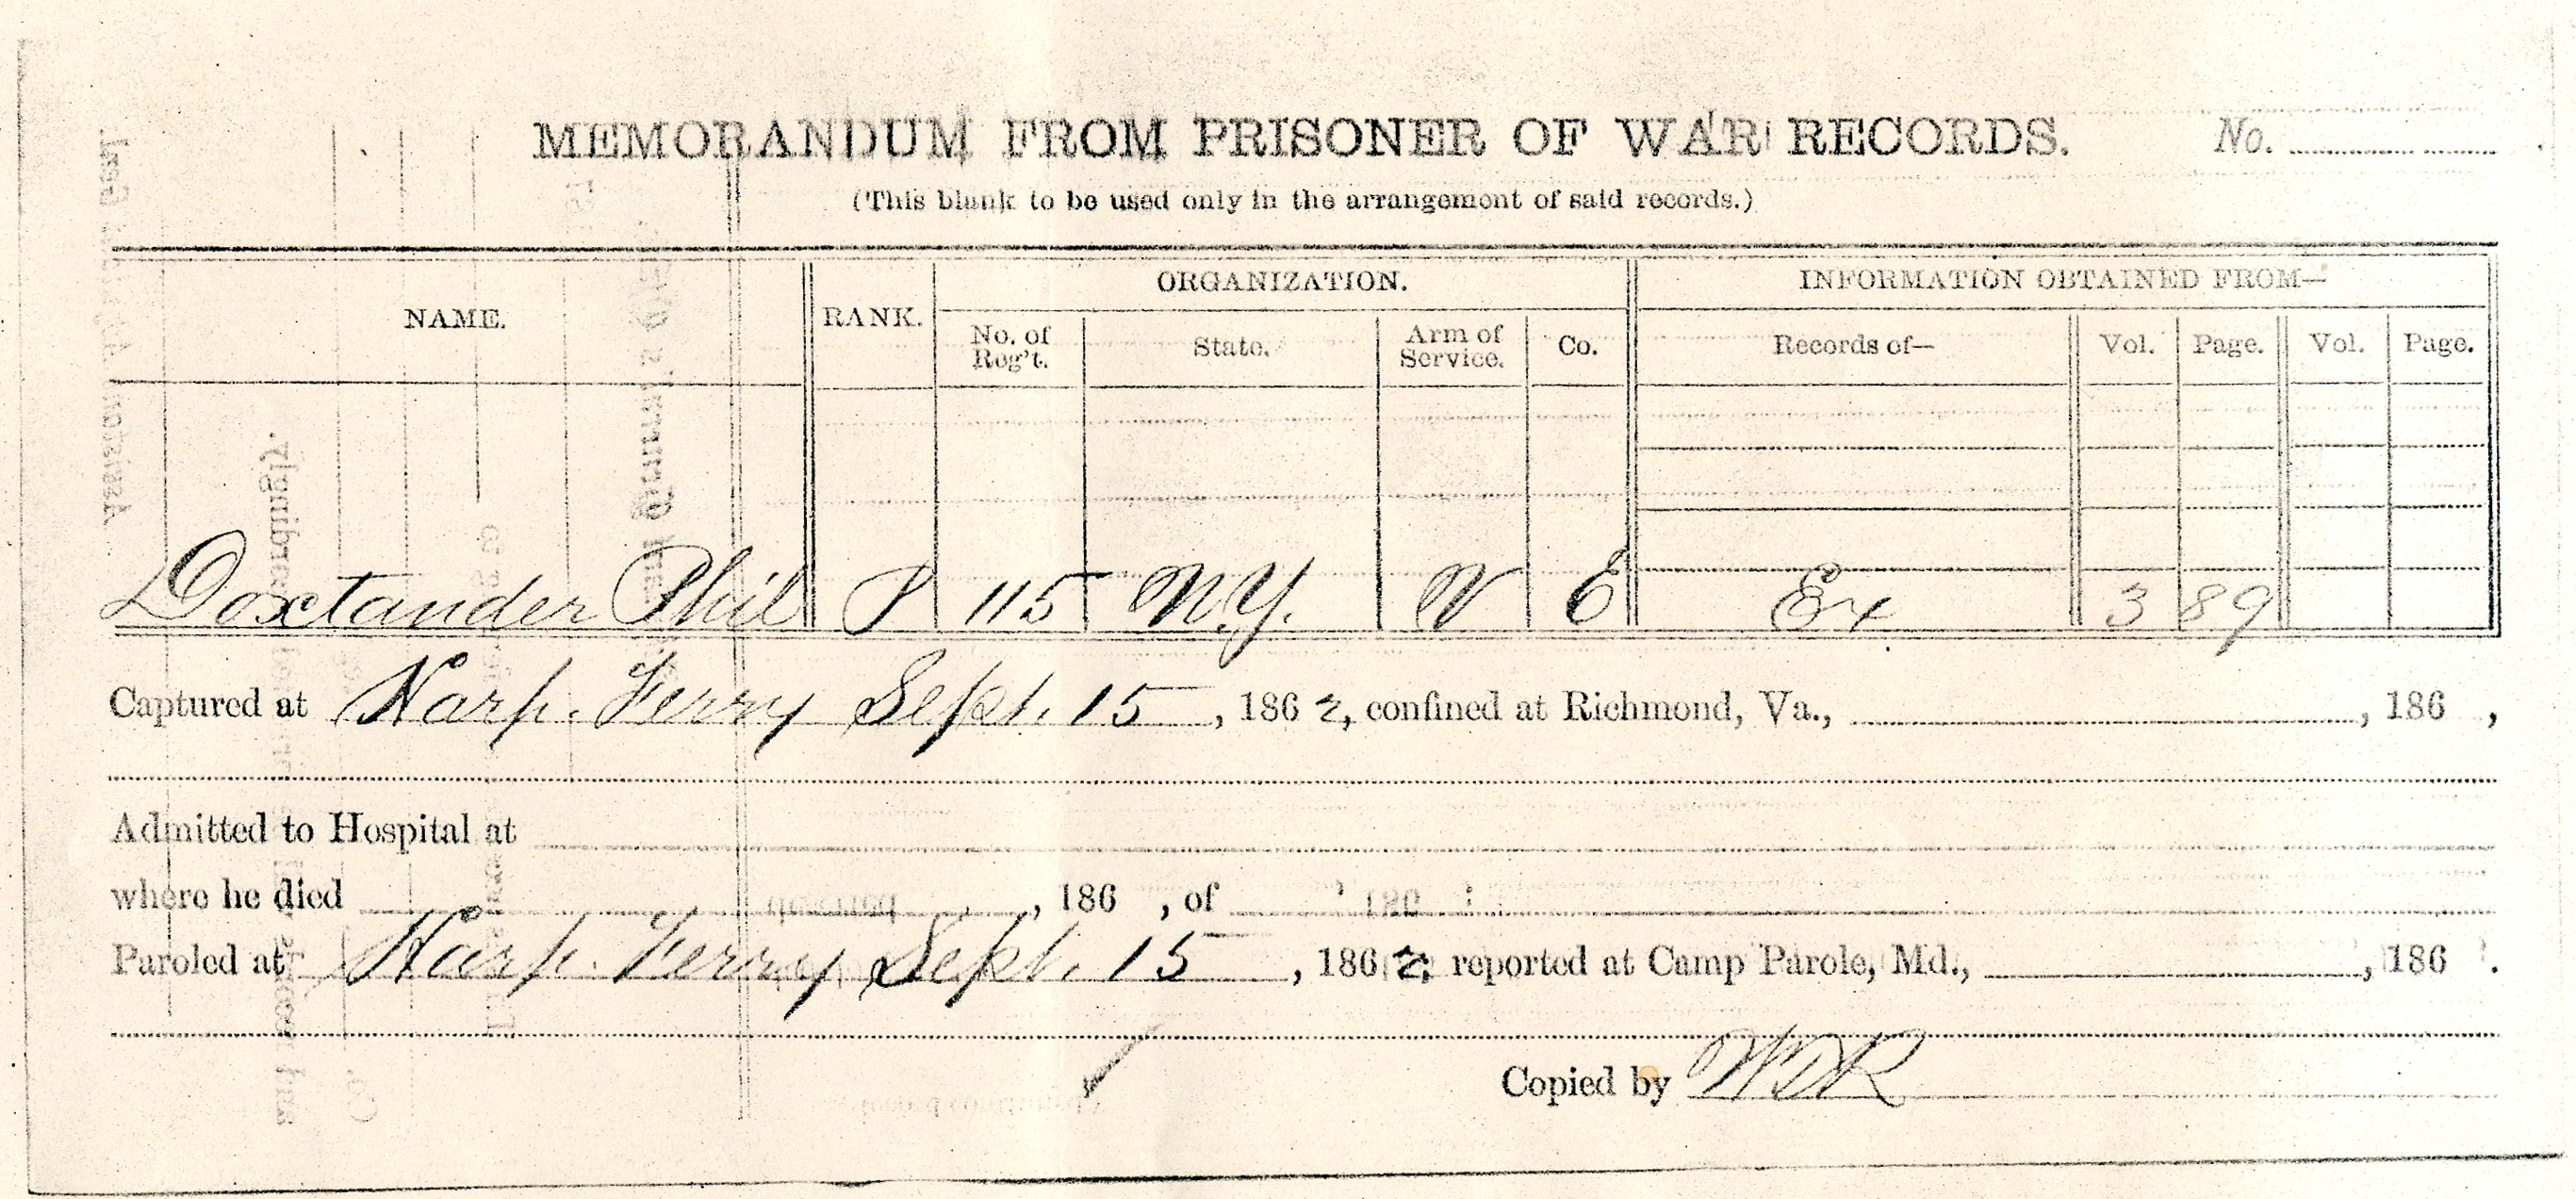 MEMORANDUM FROM PRISONER OF WAR RECORDS. No.
(This blank to be used only in the arrangement of said records.)
NAME. RANK. ORGANIZATION. INFORMATION OBTAINED FROM—
No. of Reg't. State. Arm of Service. Co. Records of— Vol. Page. Vol. Page.
Doxtander Phil P 115 N.Y. V E Ex 3 89
Captured at Harp. Ferry Sept. 15, 1862, confined at Richmond, Va., , 186 ,
Admitted to Hospital at
where he died , 186 , of
Paroled at Harp. Ferry Sept. 15, 1862; reported at Camp Parole, Md., , 186 .
Copied by WDR